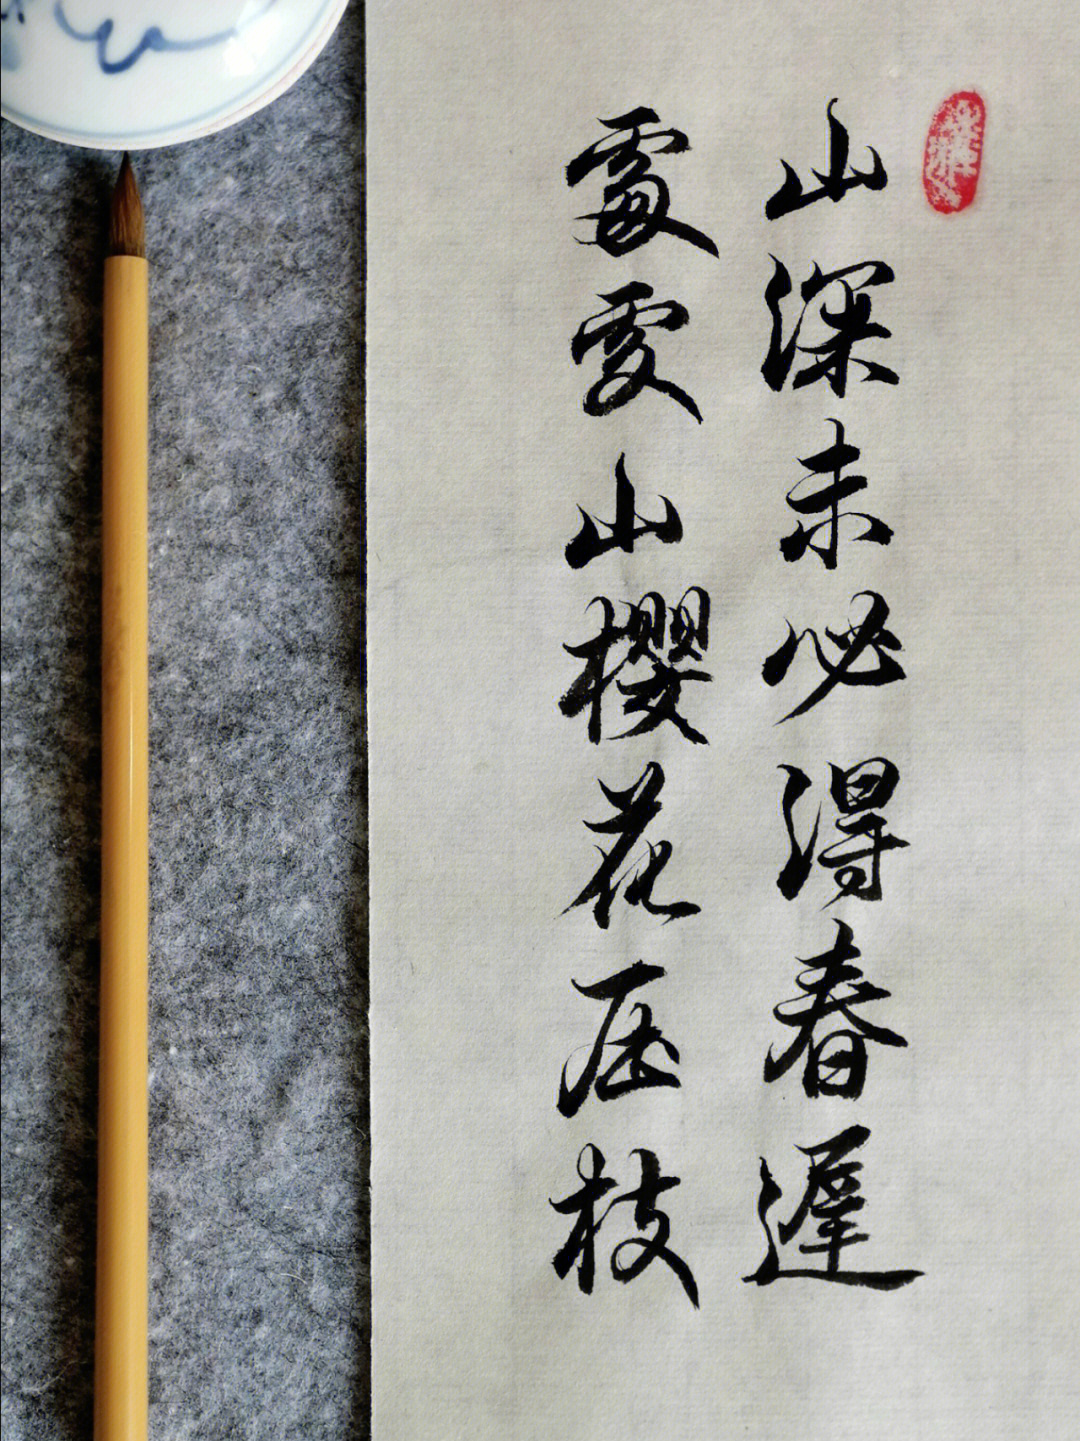 山深未必得春遲
處處山櫻花压枝